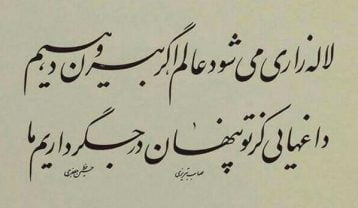 لاله زاری می شود عالم اگر بیرون دهیم
داغهایی کز تو پنهان در جگر داریم ما
صائب تبریزی